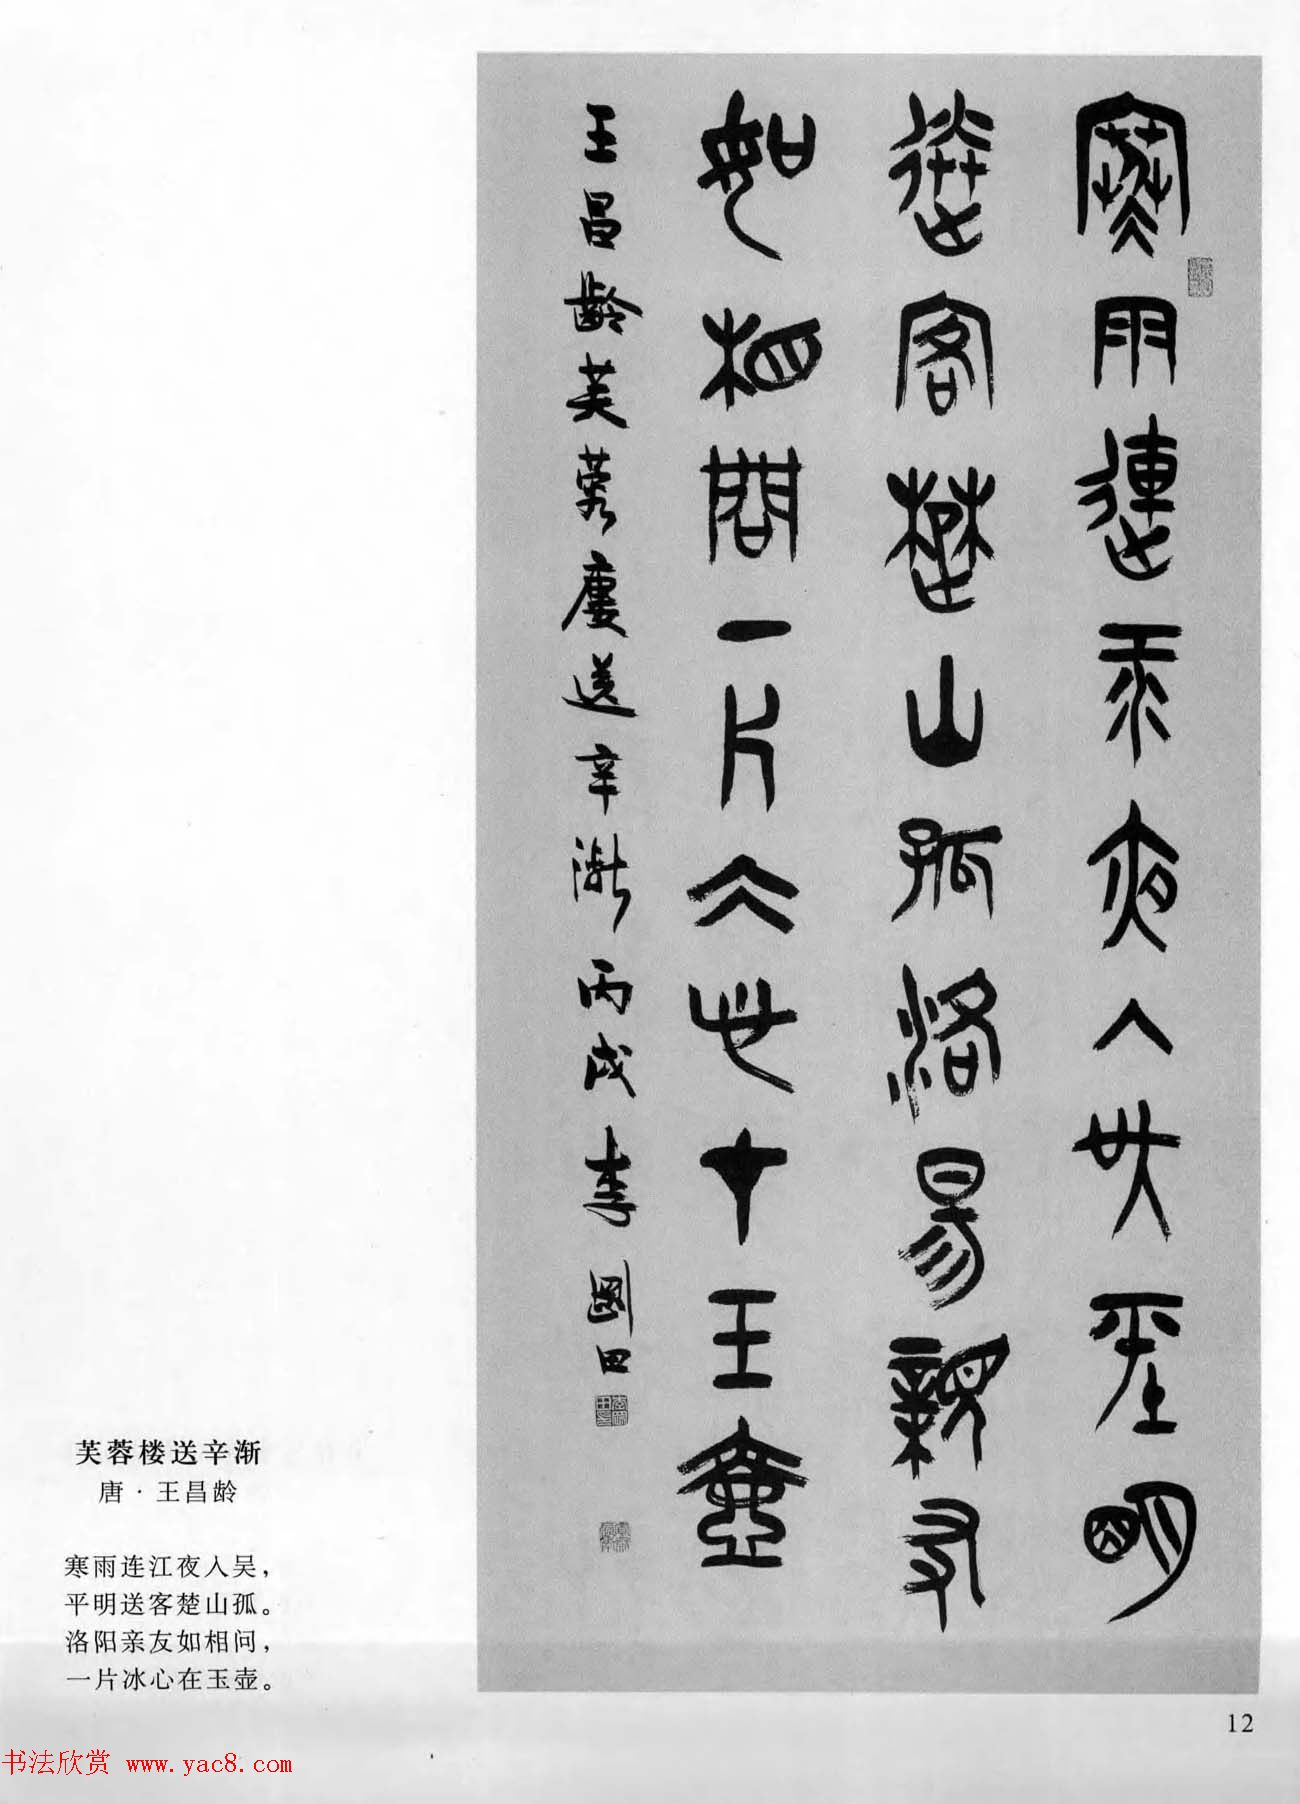 寒雨連江夜入吳平明
送客楚山孤洛昜親友
如相問一片仌心在玉壺
王昌齡芙蓉廔送辛漸 丙戌 李剛田
芙蓉楼送辛渐
唐·王昌龄
寒雨连江夜入吴，
平明送客楚山孤。
洛阳亲友如相问，
一片冰心在玉壶。
12
书法欣赏 www.yac8.com